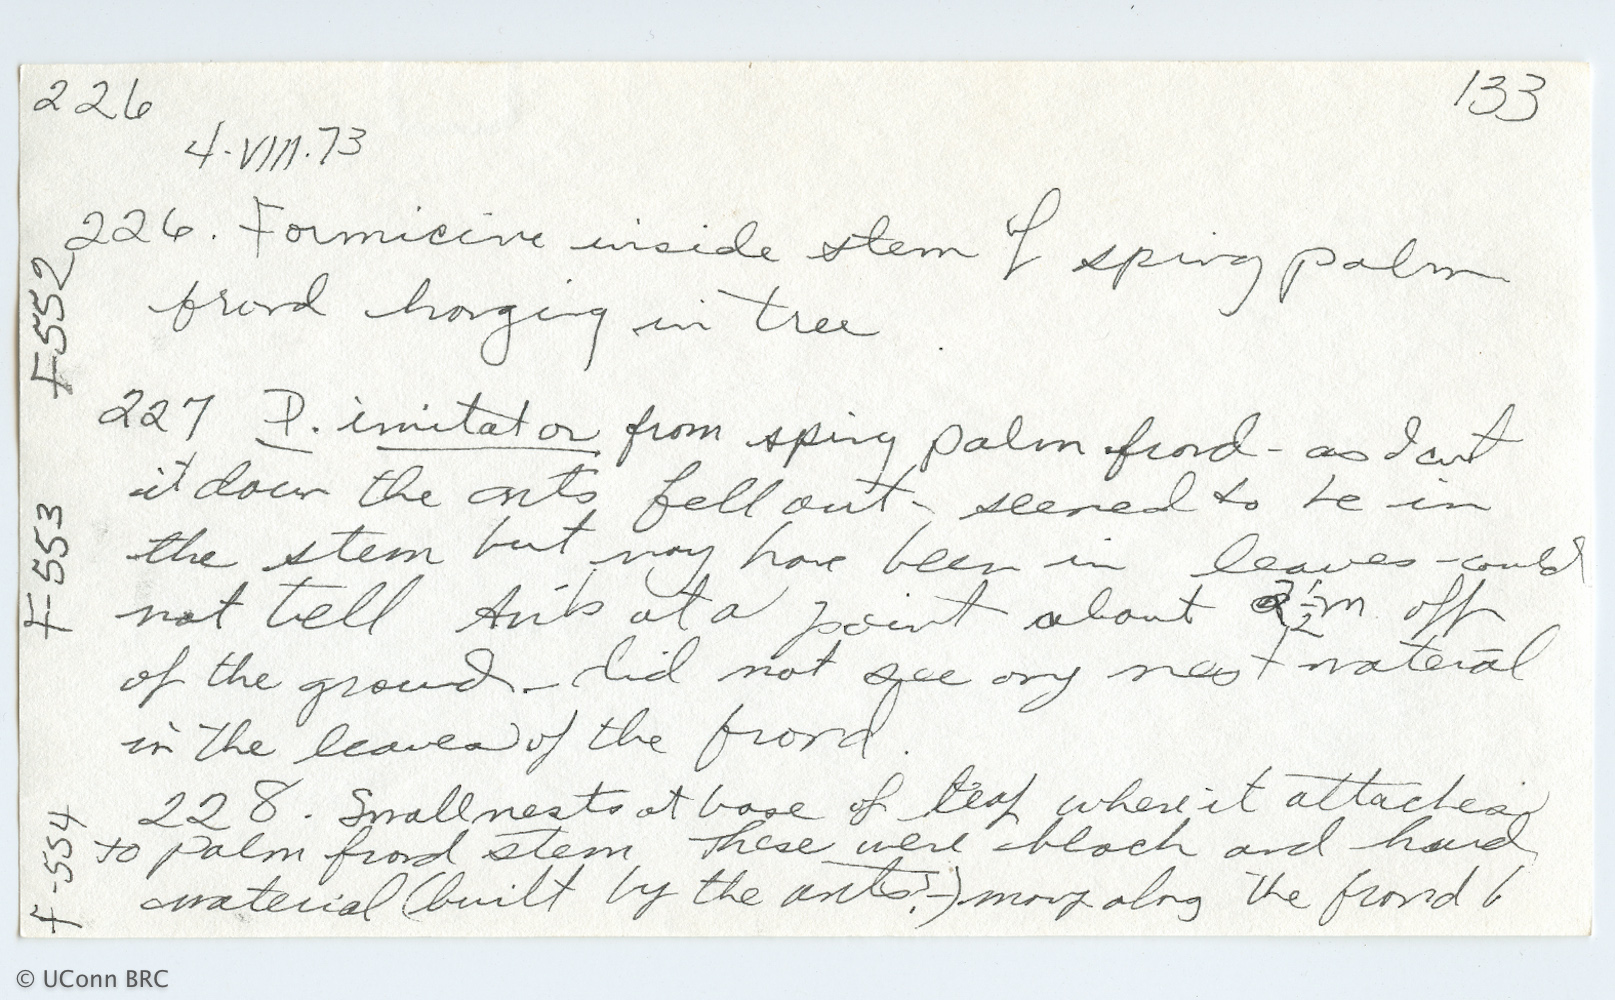 226
133
4.VIII.73
226. Formicine inside stem of spiny palm
frond hanging in tree
F-552
227 D. imitator from spiny palm frond - as I cut
it down the ants fell out - seemed to be in
the stem but may have been in leaves - could
not tell Ants at a point about 2½ m. off
of the ground - did not see any nest material
in the leaves of the frond.
F-553
228. Small nests at base of leaf where it attaches
to palm frond stem These were black and hard
material (built by the ants? -) many along the frond
F-554
© UConn BRC